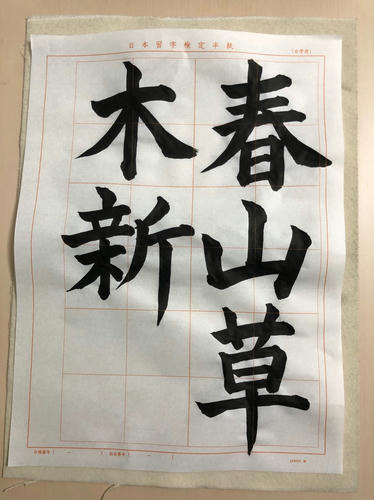 日本習字検定半紙
春山草
木新